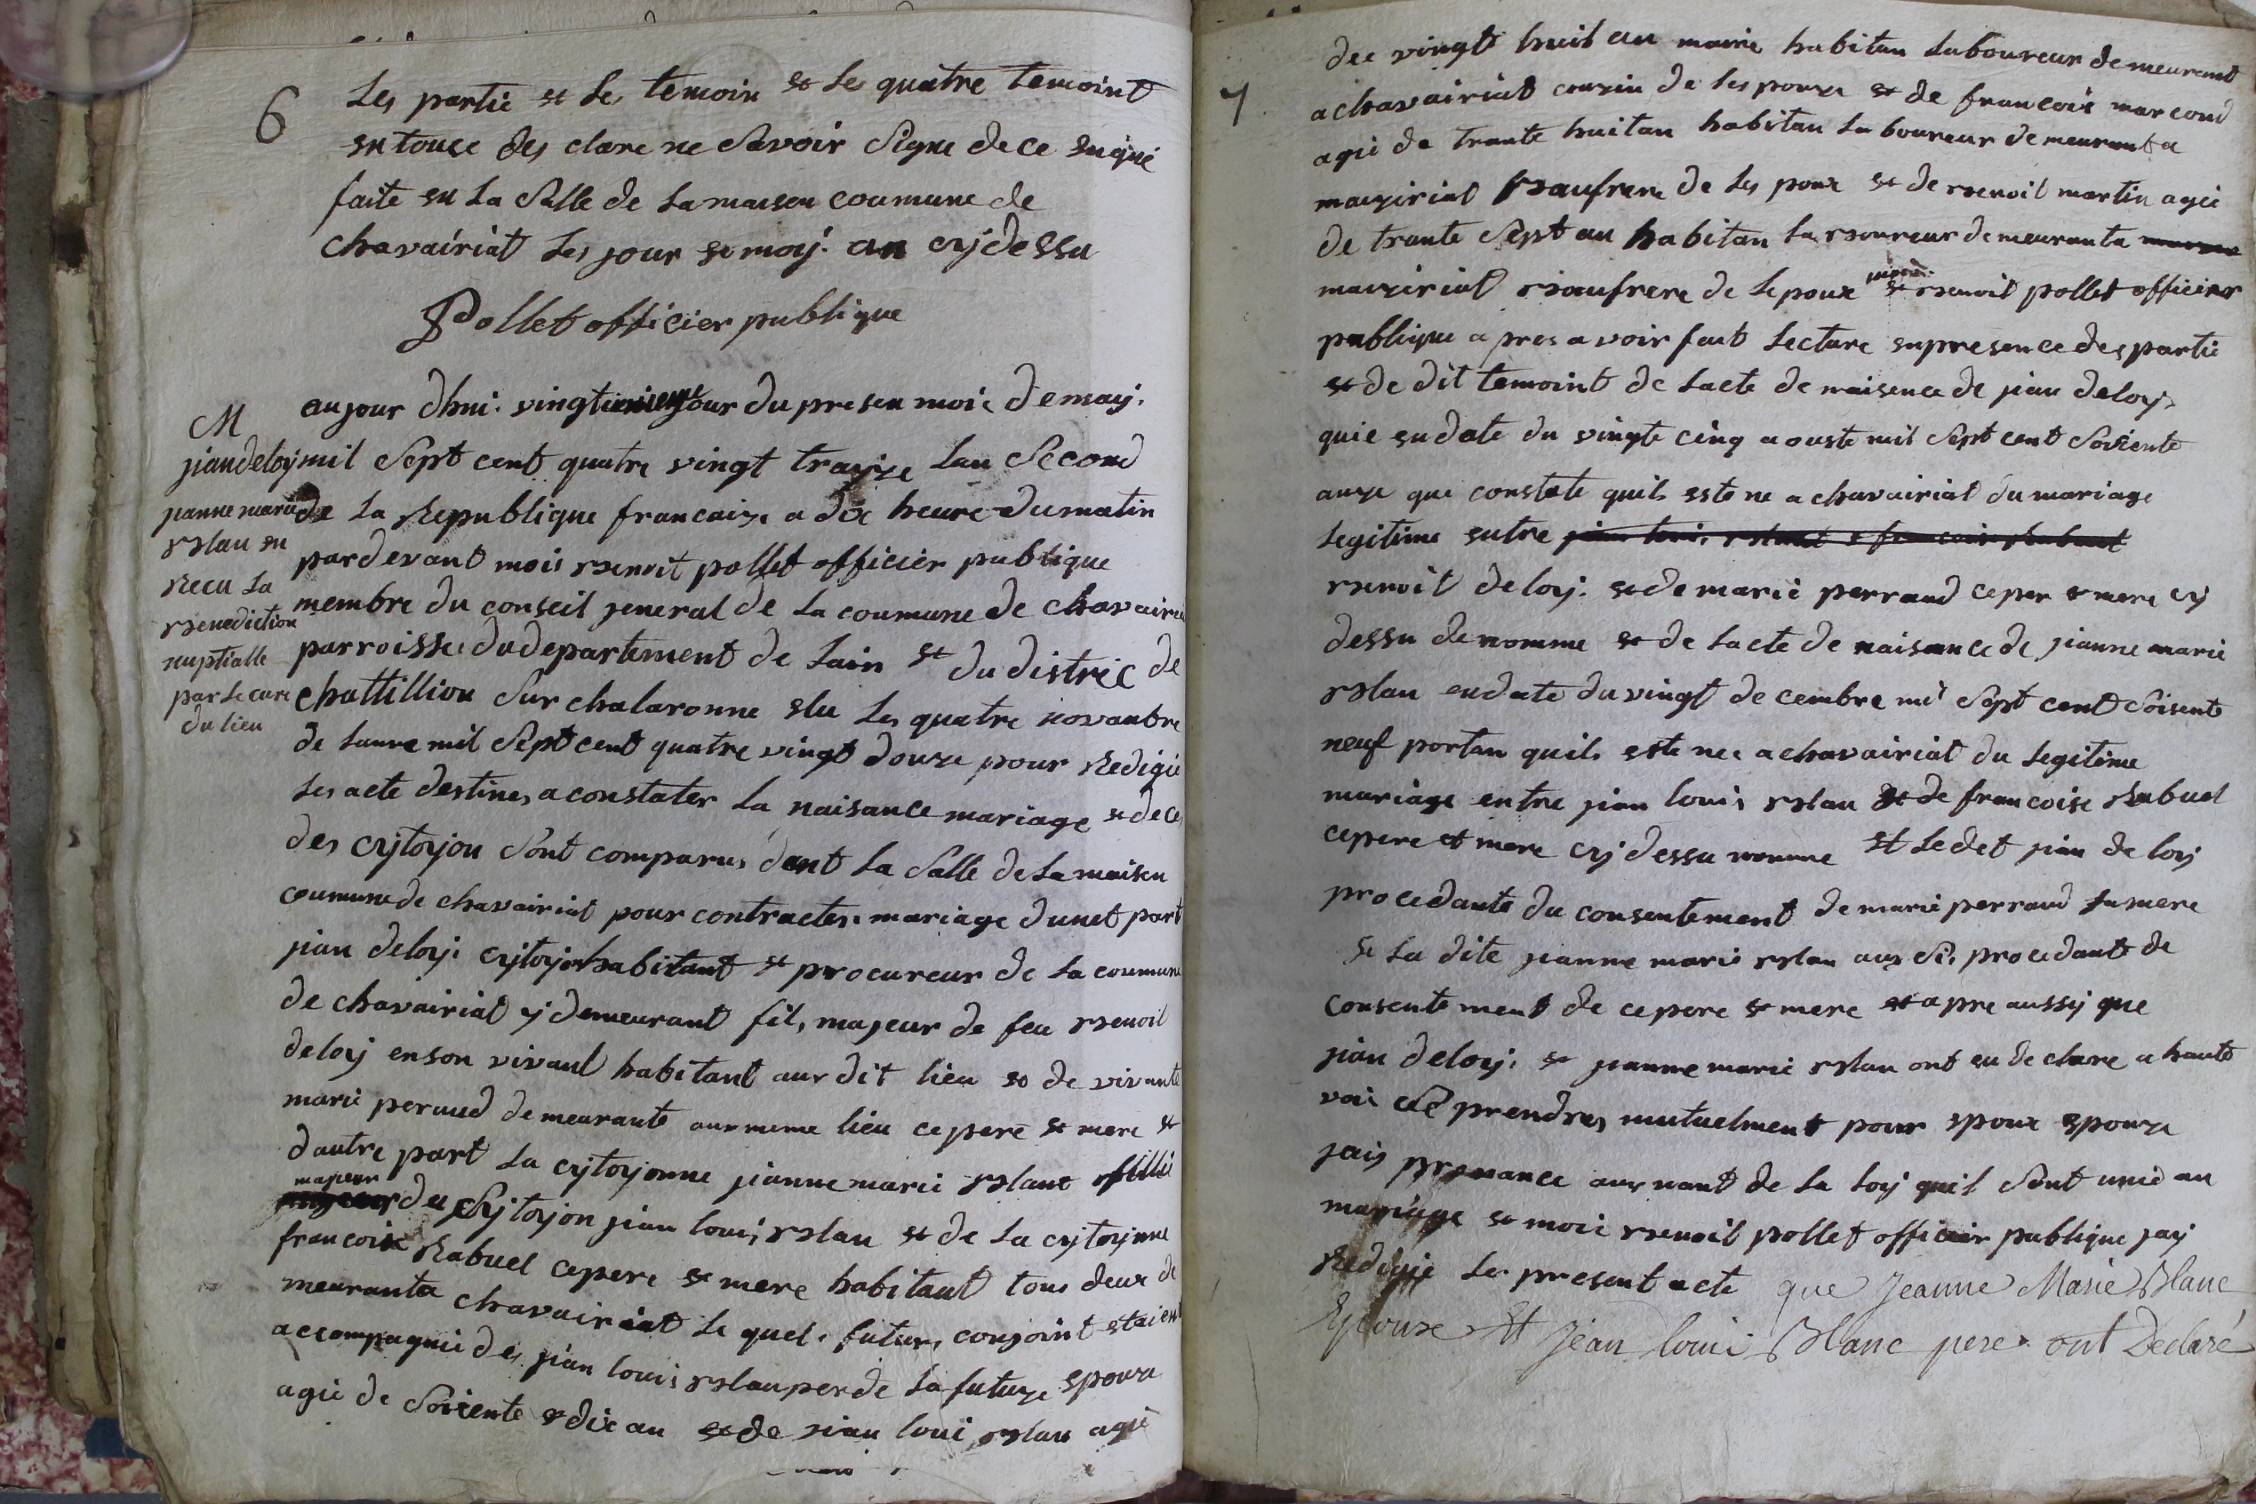 6
Les partie et les temoin et les quatre temoint
en touce des clare ne Savoir Signe de ce enqué
faite en La Salle de La maison coumune de
chavairiat Les jour et moÿ an cÿ dessu
Pollet officier publique
M
jian deloÿ
janne marie
Blan on
Recu La
Benediction
nuptialle
par Le cure
du lieu
aujour dhui vingtieme jour du presen mois de maÿ
mil Sept cent quatre vingt traize Lan Second
de La Republique francaize a dix heure du matin
pardevant mois Benoit pollet officier publique
membre du conseil jeneral de La coumune de chavairia
parroisse du departement de Lain et du distric de
chattillion Sur chalaronne elu Les quatre novanbre
de Lanne mil Sept cent quatre vingt douze pour Redigie
Les acte destines a constater La naisance mariage et dece
des cÿtoÿon Sont comparus dant La Salle de La maison
coumune de chavairiat pour contracter mariage dunet part
jian deloÿ cÿtoÿon habitant et procureur de La coumune
de chavairiat ÿ demeurant fils majeur de feu Benoit
deloÿ en son vivant habitant aux dit lieu et de vivante
marie peraud demeurante aux meme lieu ce pere et mere et
dautre part La cÿtoÿonne jianne marie Blanc fillie
majeur du Cÿtoÿon jian louis Blan et de La cÿtoÿnne
francoise Rabuel ce pere et mere habitant tous deux de
meurant a chavairiat Le quel futurs conjoint etaient
accompagnie des jian louis Blan per de La future epouze
agie de Soixente et dix an et de jian loui Blan agie
7
dee vingte huit an moire habitan Laboureur demeurant
a chavairiat couzin de Les pouze et de francois marcoud
agie de trante huit an habitan La boureur demeurant a
maiziriat Baufrere de Les poux et de Benoit martin agie
de trante Sept an habitan La Boureur demeurant a
maiziriat Baufrere de Le poux Benoit pollet officier
publique a pres avoir fait Lecture en presence des partie
et de dit temoint de Lacte de naisence de jian deloÿ
quie en date du vingte cinq aouste mil Sept cent Soixente
anze que constate quils este ne a chavairiat du mariage
Legitime entre
Benoit deloÿ et de marie perraud ce per et mere cÿ
dessu denomme et de Lacte de naisance de jianne marie
Blan en date du vingt de cembre mil Sept cent Soisente
neuf portan quils este nee a chavairiat du Legitime
mariage entre jian louis Blan et de francoise Rabuel
ce pere et mere cÿ dessu nomme et Le det jian de loÿ
procedante du consentement de marie perraud Sa mere
et La dite jianne marie Blan aux Si procedante de
consente ment de ce pere et mere et apre aussÿ que
jian deloÿ et jeanne marie Blan ont eu declare a haute
voi Se prendres mutuelment pour epoux epouze
jais prononce aux nant de La loÿ quil Sont unie au
mariage et moie Benoit pollet officier publique jaÿ
Redigie Les present acte que Jeanne Marie Blanc
Epouse Et Jean loui Blanc pere ont Déclaré